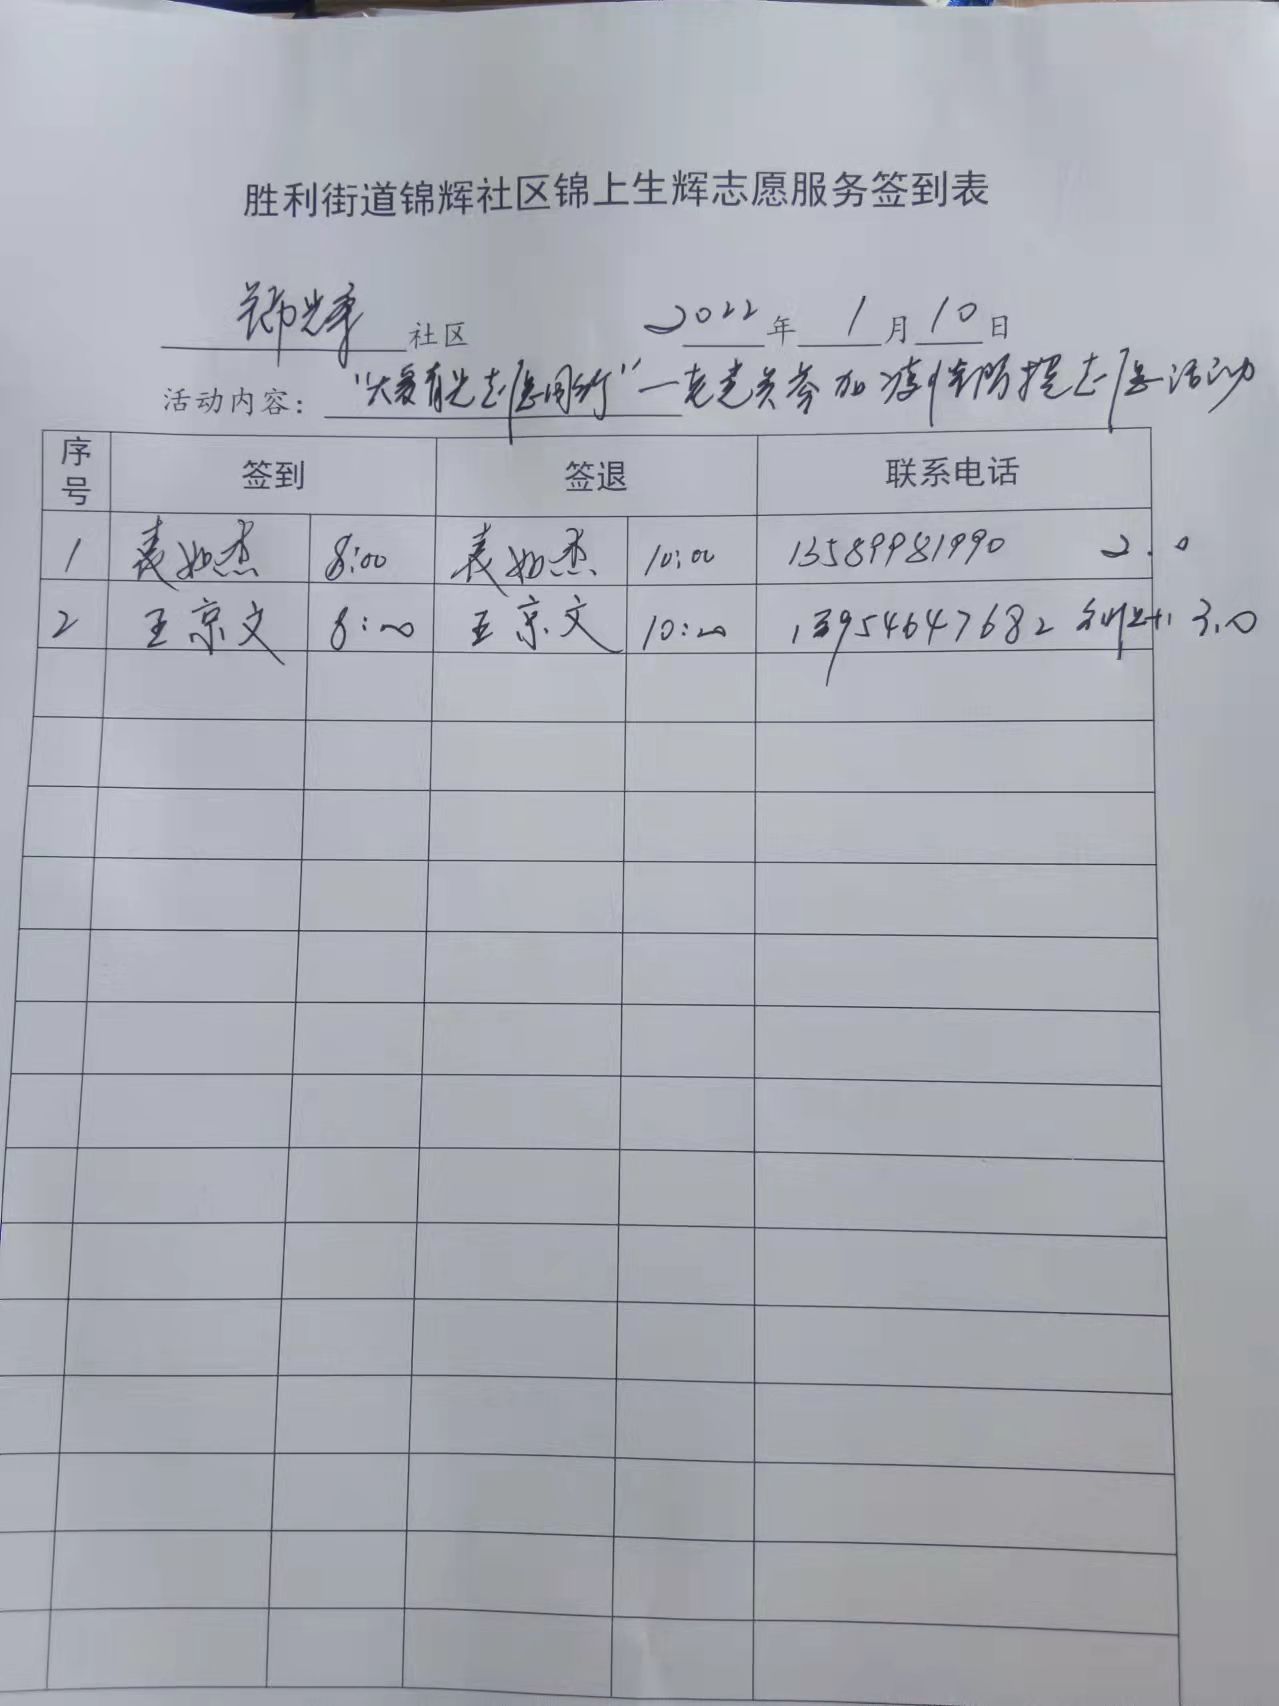 胜利街道锦辉社区锦上生辉志愿服务签到表
锦辉社区 2022年1月10日
活动内容："大爱有光志愿同行"一老党员参加疫情防控志愿活动
序号 签到 签退 联系电话
1 袁如杰 8:00 袁如杰 10:00 13589981990 2.0
2 王京文 8:00 王京文 10:00 13954647682 3.0